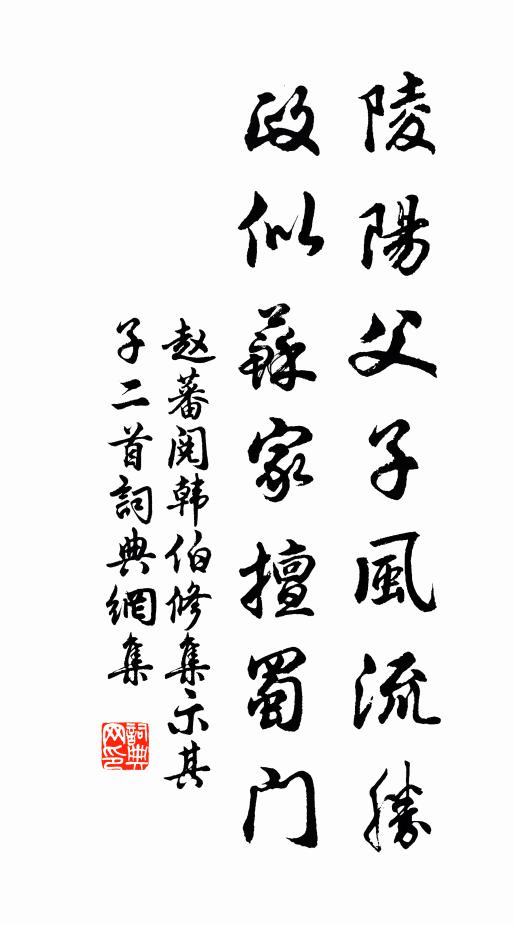 陵陽父子風流勝
政似蘇家擅蜀門
赵蕃阅韩伯修集示其
子二首詞典網集
詞典
网印